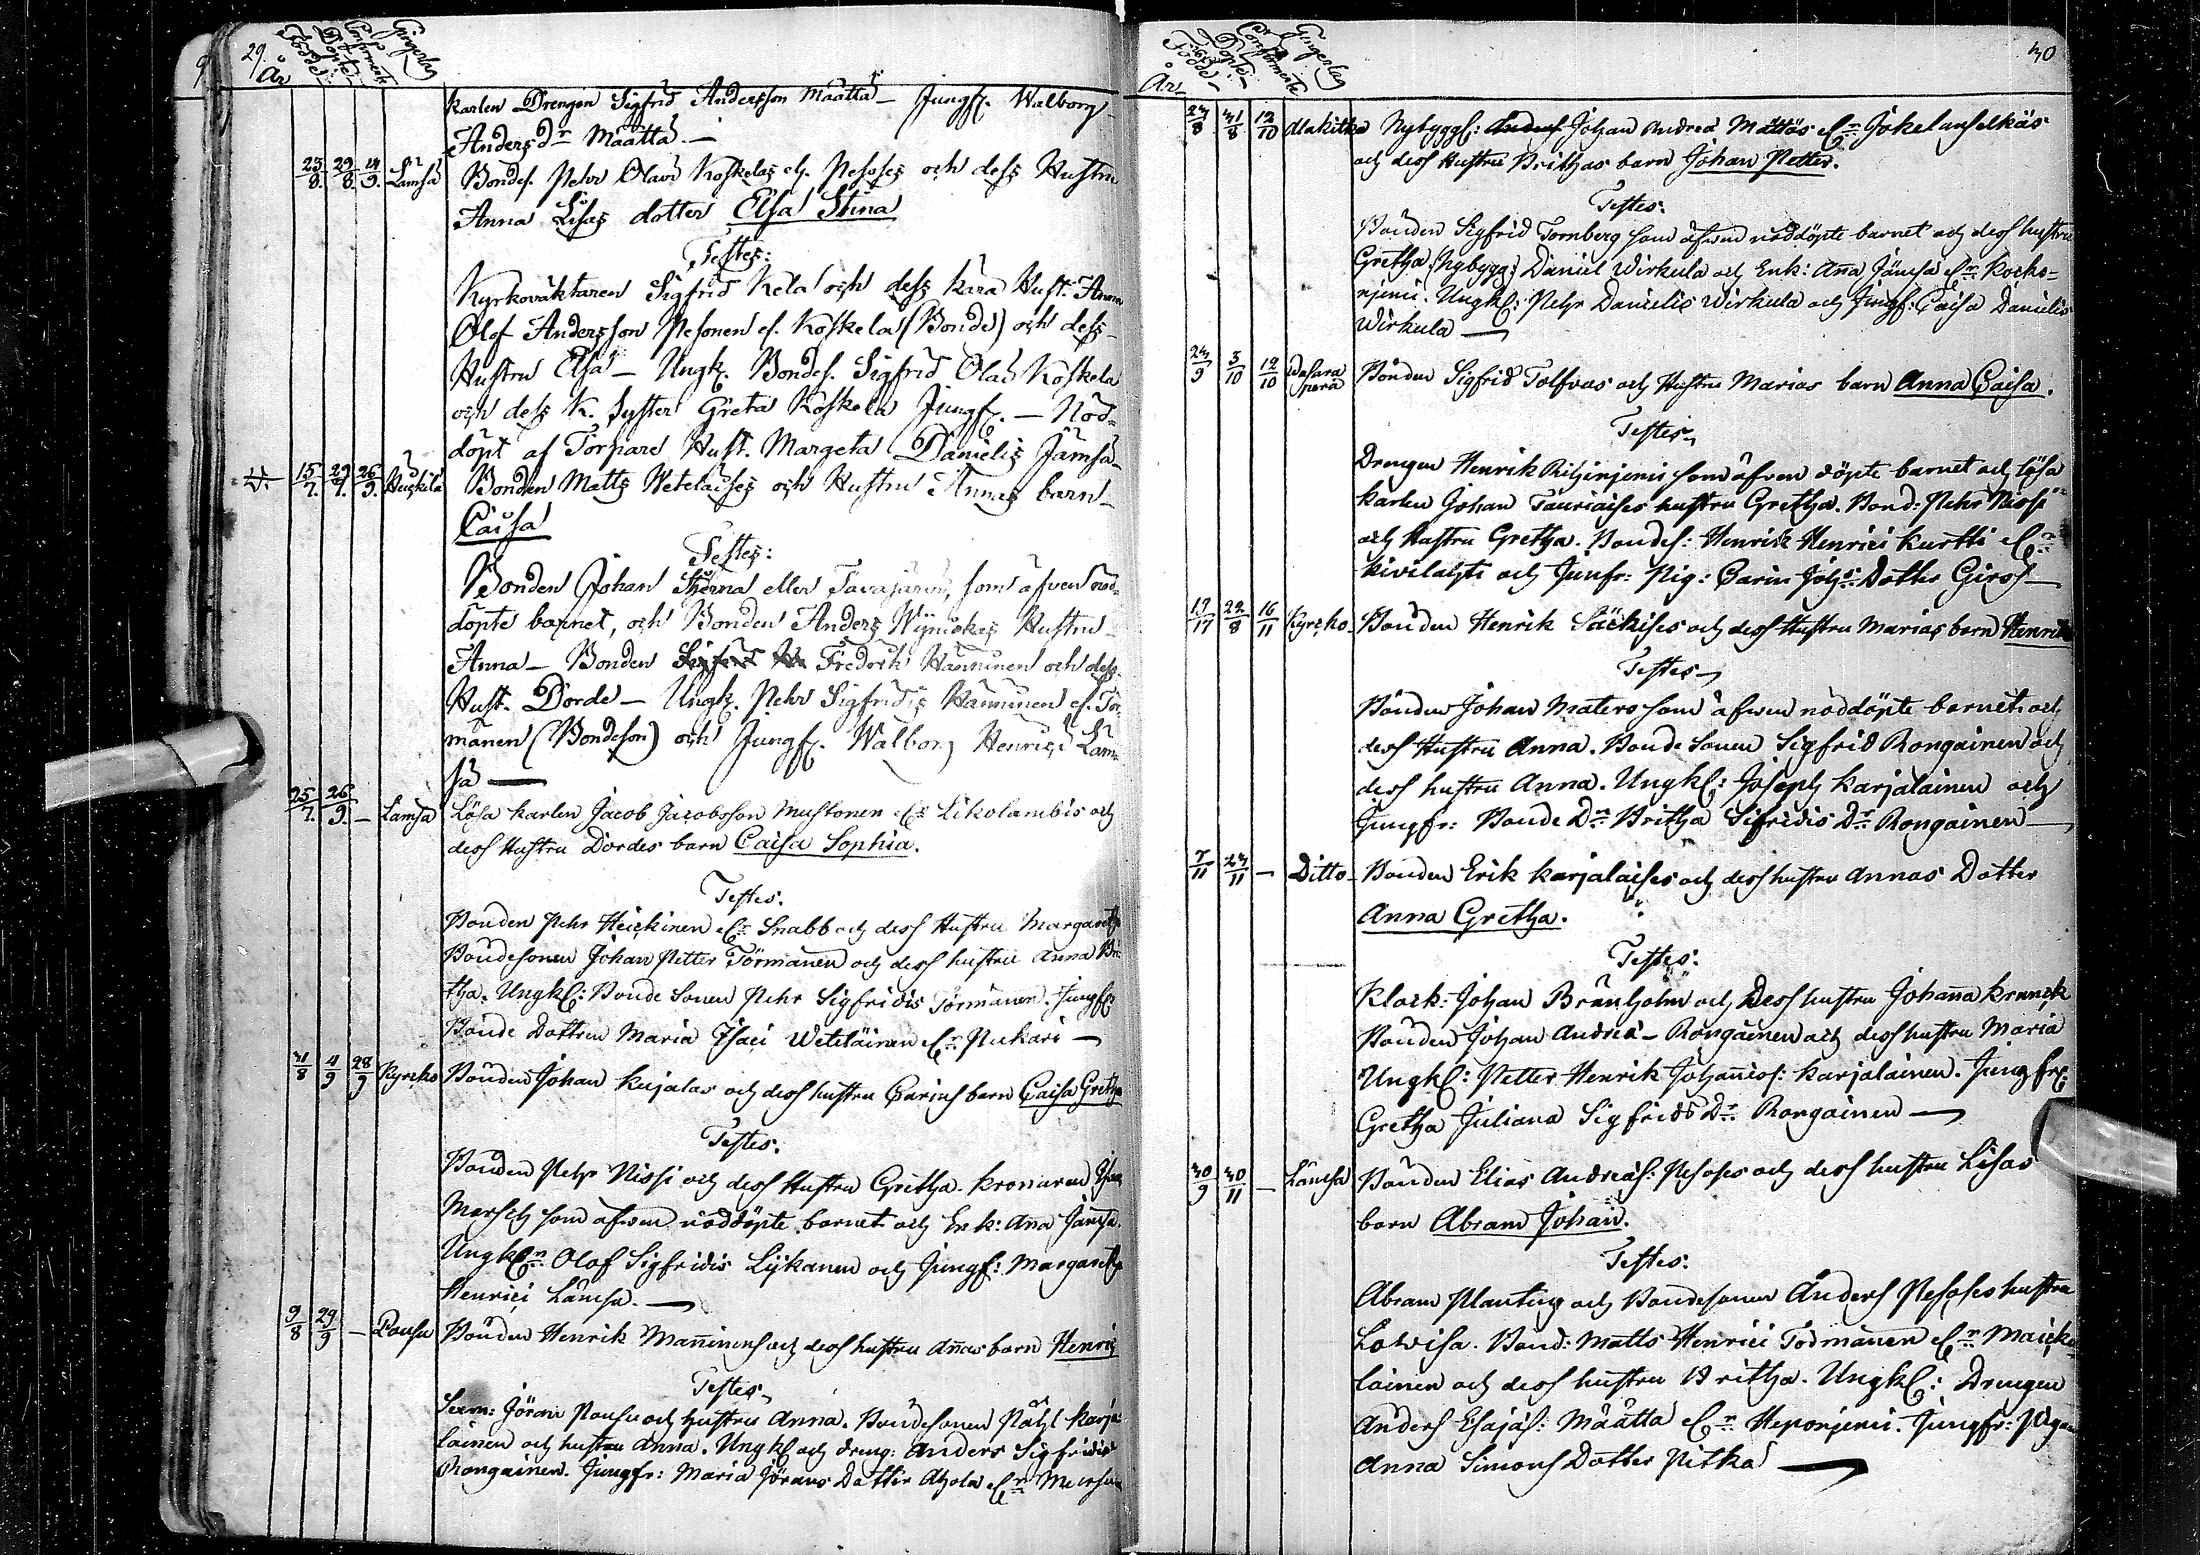 29.
År Född Döpte Confirmerte Gingerlag
Karlen Drengen Sigfrid Andersson Määttä – Jungf. Walborg
Andersdr Määttä. –
23/8. 29/8. 14/9. Lämsä Bondes. Pehr Olavi Koskelas el. Pesoses och dess Hustru
Anna Lisas dotter Elsa Stina
Testes:
Kyrkowäktaren Sigfrid Kela och dess kära Hust. Anna
Olof Andersson Pesonen el. Koskela (Bonde) och dess
Hustru Elsa – Ungk. Bondes. Sigfrid Olavi Koskela
och dess K. syster Greta Koskela Jungf. – Nöd=
döpt af Torpare Hust. Margeta Danielis Jämsä –
15/7. 29/7. 26/9. Heiskila Bonden Matts Wetelaises och Hustru Annas barn –
Caisa
Testes:
Bonden Johan Stjerna eller Tavajärvi, som äfven nöd=
döpte barnet, och Bonden Anders Hustru –
Anna – Bonden Fredrik Hänninen och dess
Hust. Dorde – Ungk. Pehr Sigfridis Hänninen el. Tör=
mänen (Bondeson) och Jungf. Walborg Henrici Läm=
sä —
25/7. 26/9. – Lämsä Lösa karlen Jacob Jacobsson Mustonen elr Likolambis och
dess Hustru Dordes barn Caisa Sophia.
Testes.
Bonden Pehr Heickinen elr Snabb och dess Hustru Margaretha
Bondesonen Johan Petter Törmänen och dess hustru Anna Bri
tha. Ungkl: Bonde Sonen Pehr Sigfridis Törmänen. Jungfr:
Bonde Dottren Maria Isaci Weteläinen elr Pukari —
31/8 4/9 28/9 Kyrcko Bonden Johan Kujalas och dess hustru Carins barn Caisa Gretha
Testes.
Bonden Pehr Nissi och dess Hustru Gretha.
som äfwen nöddöpte barnet och Enk: Anna Jämsä.
Ungkln Olof Sigfridis Lykanen och Jungf: Margaretha
Henrici Lämsä. —
9/8 29/9 – Pousu Bonden Henrik Manninens och dess hustru Annas barn Henric
Testes
Jöran Pousu och hustru Anna. Bondesonen Påhl Karja=
lainen och hustru Anna. Ungkl och dreng: Anders Sigfridis
Rongainen. Jungfr: Maria Jörans Dotter Ahola elr
30
År Född Döpte Confirmerte Gingerlag
23/8 31/8 12/10 Alakitka Nybyggl: Johan Andreä Mättäs elr Jokelanselkäs
och dess Hustru Brithas barn Johan Petter.
Testes:
Bonden Sigfrid Tornberg som äfwen nöddöpte barnet och dess hustru
Gretha. Nybygg: Daniel Wirkula och Enk: Anna Jämsä elr Kocko=
njemi. Ungkl: Pehr Danielis Wirkula och Jungf: Caisa Danielis
Wirkula —
23/9 3/10 12/10 Wasara perä Bonden Sigfrid Tolfvas och Hustru Marias barn Anna Caisa.
Testes
Drengen Henrik Riihinjemi som äfven döpte barnet och Lösa
karlen Johan Tauriaises hustru Gretha. Bond: Pehr Nissi
och Hustru Gretha. Bondes: Henrik Henrici Kurtti elr
Kivilahti och Junfr: Pig: Carin Johs: Dotter Giros —
19/17 22/8 16/11 Kyrcko Bonden Henrik Säckises och dess Hustru Marias barn Henrik
Testes
Bonden Johan Matero som äfwen nöddöpte barnet och
dess Hustru Anna. Bonde Sonen Sigfrid Rongainen och
dess hustru Anna. Ungkl: Joseph Karjalainen och
Jungfr: Bonde Dr Britha Sifridis Dr Rongainen —
7/11 23/11 – Ditto Bonden Erik Karjalaises och dess hustru Annas Dotter
Anna Gretha.
Testes.
Klock: Johan Brånholm och Dess hustru Johanna Kranck
Bonden Johan Andreä – Rongainen och dess hustru Maria
Ungkl: Petter Henrik Johannis: Karjalainen. Jungfr:
Gretha Juliana Sigfrids Dr Rongainen —
30/9 30/11 – Lämsä Bonden Elias Andreäs: Pesoses och dess hustru Lisas
barn Abram Johan.
Testes:
Abram Planting och Bondesonen Anders Pesoses hustru
Lovisa. Bond: Matts Henrici Todmänen elr Maicka=
lainen och dess hustru Britha. Ungkl: Drengen
Anders Esajäs: Määttä elr Heponjemi. Jungfr: Pigan
Anna Simons Dotter Pitkä —